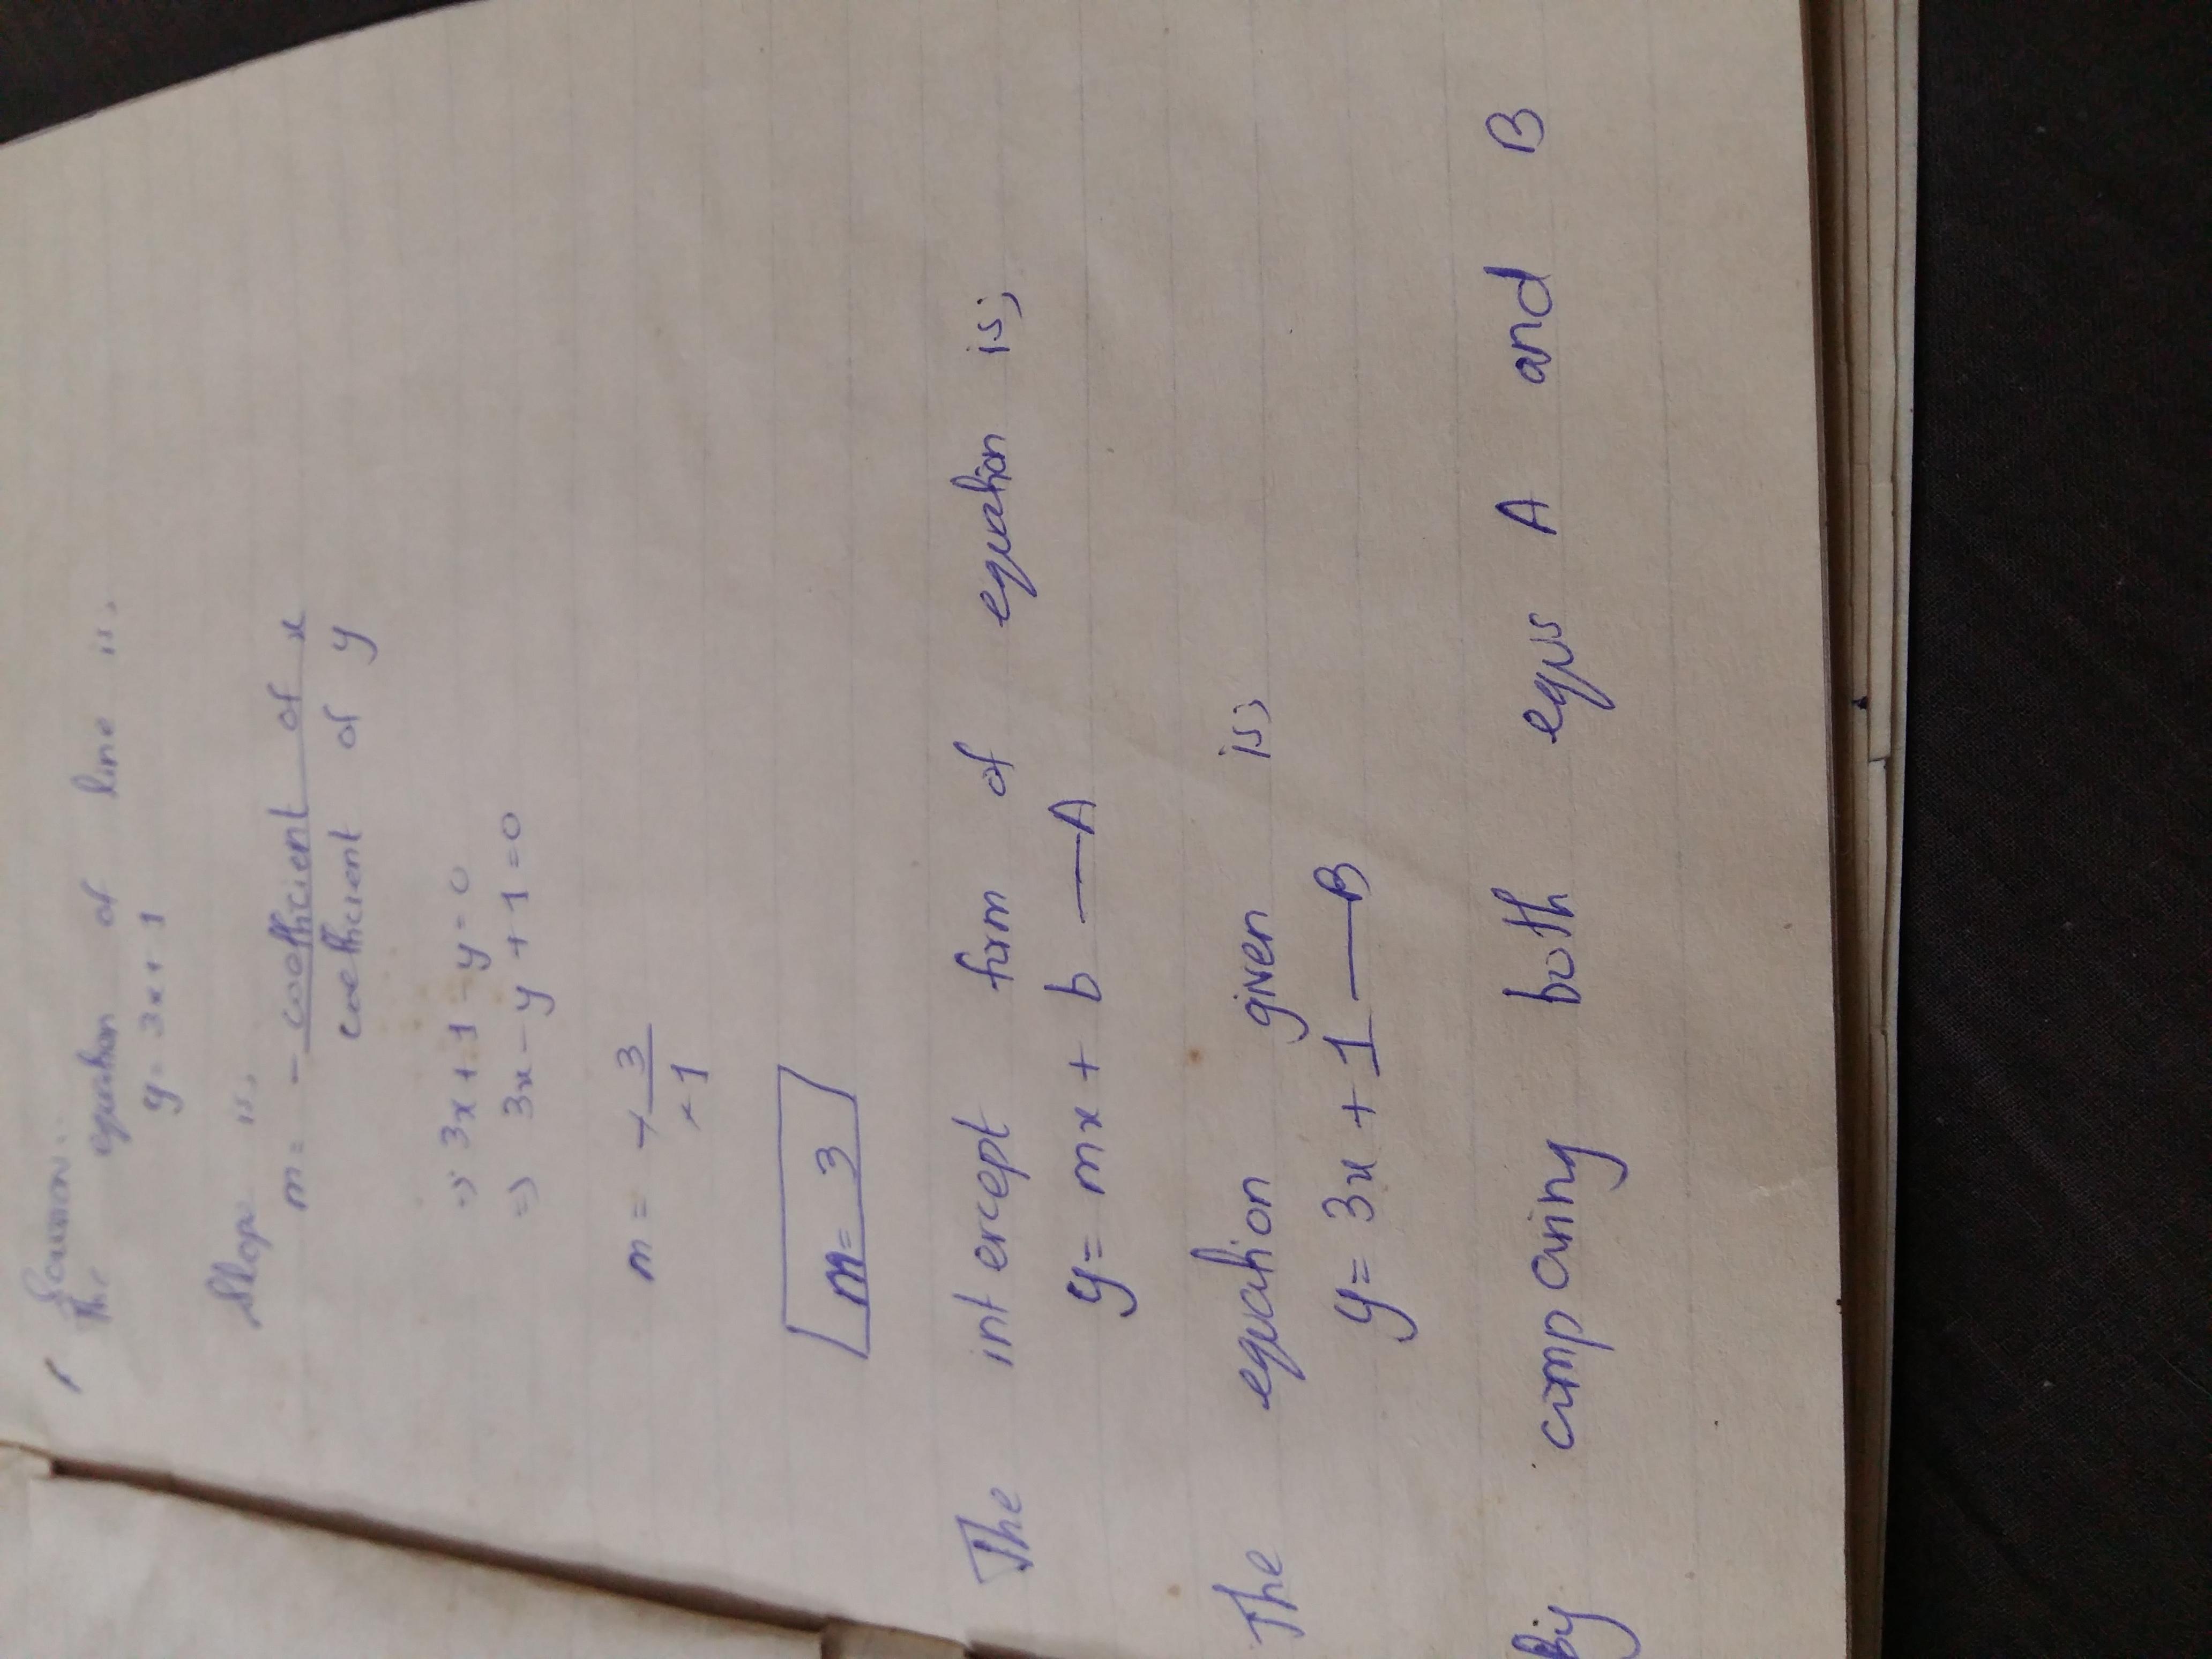 Solution:
The equation of line is,
y = 3x + 1
Slope is,
m = - coefficient of x
coefficient of y
⇒ 3x + 1 - y = 0
⇒ 3x - y + 1 = 0
m = - 3
-1
m = 3
The intercept form of equation is;
y = mx + b — A
The equation given is;
y = 3x + 1 — B
By comparing both eqns A and B